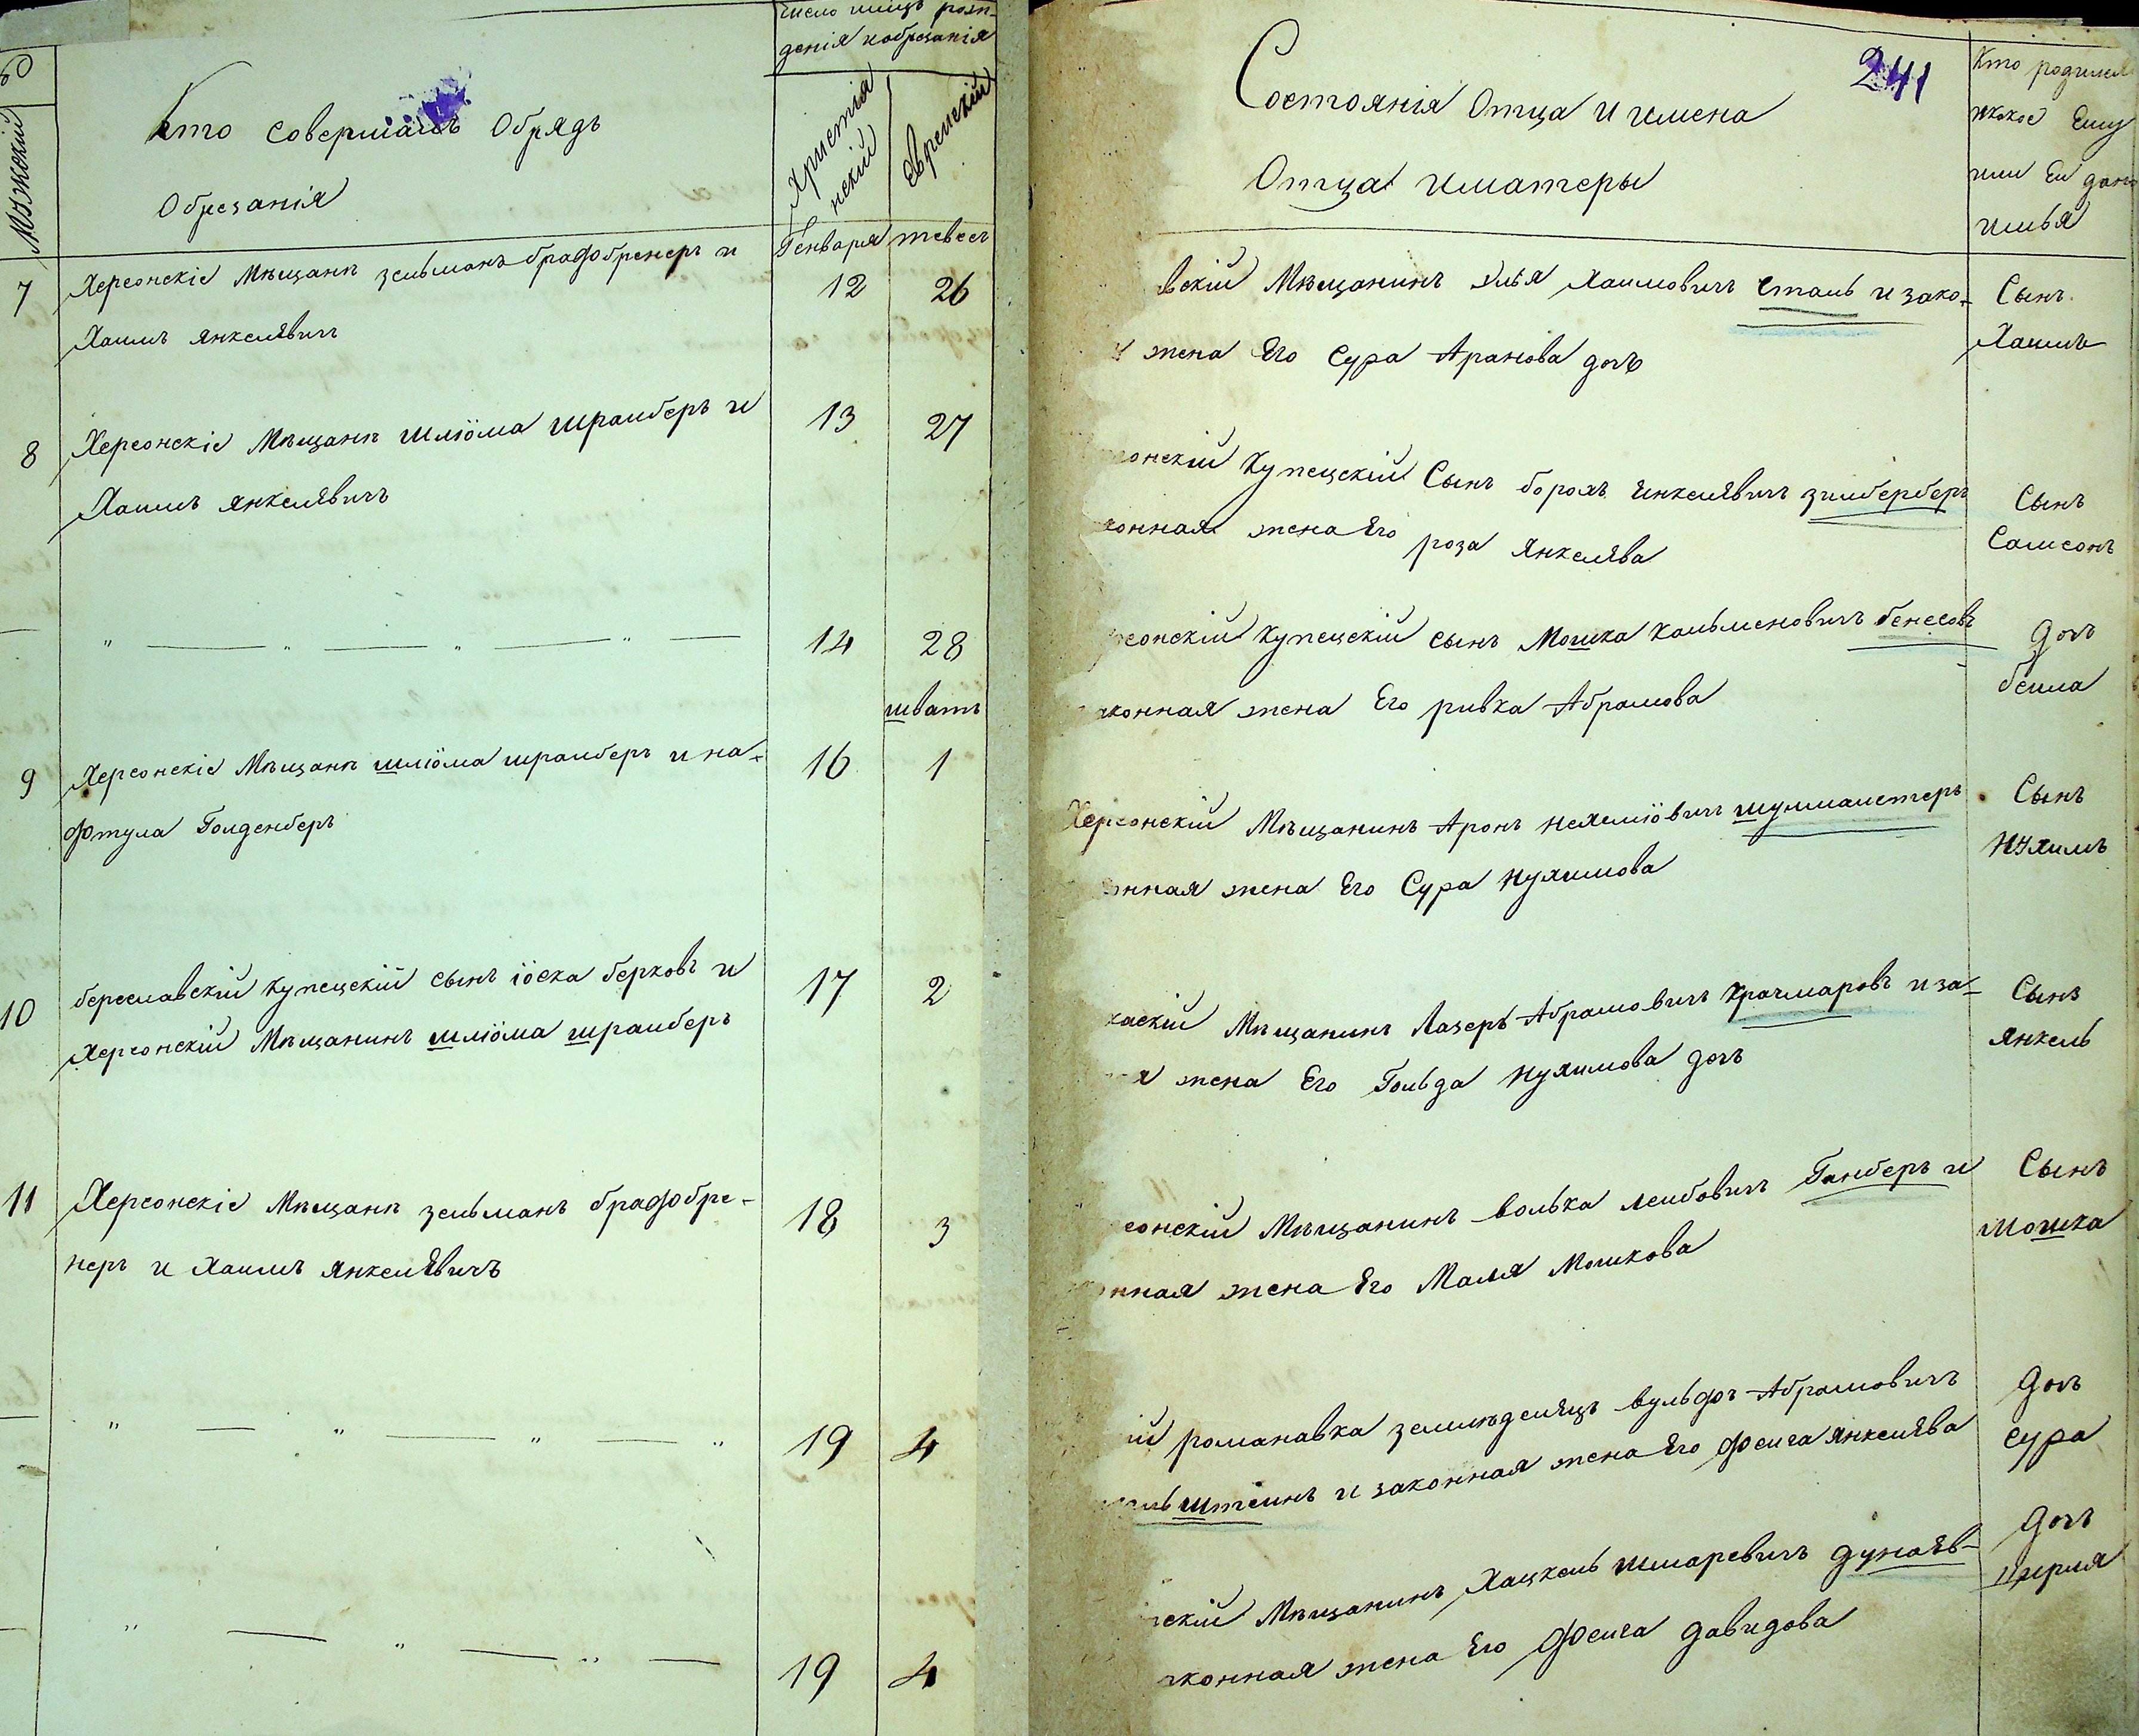 Мужескій
Кто совершалъ Обрядъ
Обрезанія
число мецъ рож-
денія и обрезанія
Христіа
нскій
Еврейскій
Генваря
тевесъ
7
Херсонскіе Мѣщанѣ зельманъ брафбренеръ и
Хаимъ Янкелявичъ
12
26
8
Херсонскіе Мѣщанѣ шліома шрайберъ и
Хаимъ Янкелявичъ
13
27
— „ — „ — „ —
14
28
шватъ
9
Херсонскіе Мѣщанѣ шліома шрайберъ и на-
фтула Голденберъ
16
1
10
береславскій купецскій сынъ іоска берковъ и
Херсонскій Мѣщанинъ шліома шрайберъ
17
2
11
Херсонскіе Мѣщанѣ зельманъ брафобре-
неръ и Хаимъ Янкелевичъ
18
3
— „ — „ — „ — „
19
4
— „ — „ — „ —
19
4
241
Состоянія Отца и имена
Отца и матеры
Кто родился
и какое Ему
или Ей дано
имья
вскій Мѣщанинъ Элья Хаимовичъ Сталь и зако-
я жена Его Сура Аранова дочь
Сынъ
Хаимъ
сонскій купецскій Сынъ борохъ Янкелявичъ зилберберъ
конная жена Его роза Янкелява
Сынъ
Самсонъ
рсонскій купецскій сынъ Мошка Кальменовичъ бенесовъ
аконная жена Его ривка Абрамова
дочь
бейла
Херсонскій Мѣщанинъ Аронъ нехеміовичъ шулмайстеръ
онная жена Его Сура Нухимова
Сынъ
Нухимъ
каскій Мѣщанинъ Лазеръ Абрамовичъ Крачмаровъ и за-
я жена Его Гольда Нухимова дочь
Сынъ
Янкель
сонскій Мѣщанинъ волька лейбовичъ Ганберъ и
онная жена Его Маля Мошкова
Сынъ
Мошка
ій романавка землѣделецъ вульфъ Абрамовичъ
льштейнъ и законная жена Его фейга Янкелява
дочь
Сура
нскій Мѣщанинъ Хацкель шмаревичъ дунаев-
аконная жена Его Фейга давидова
дочь
Церля